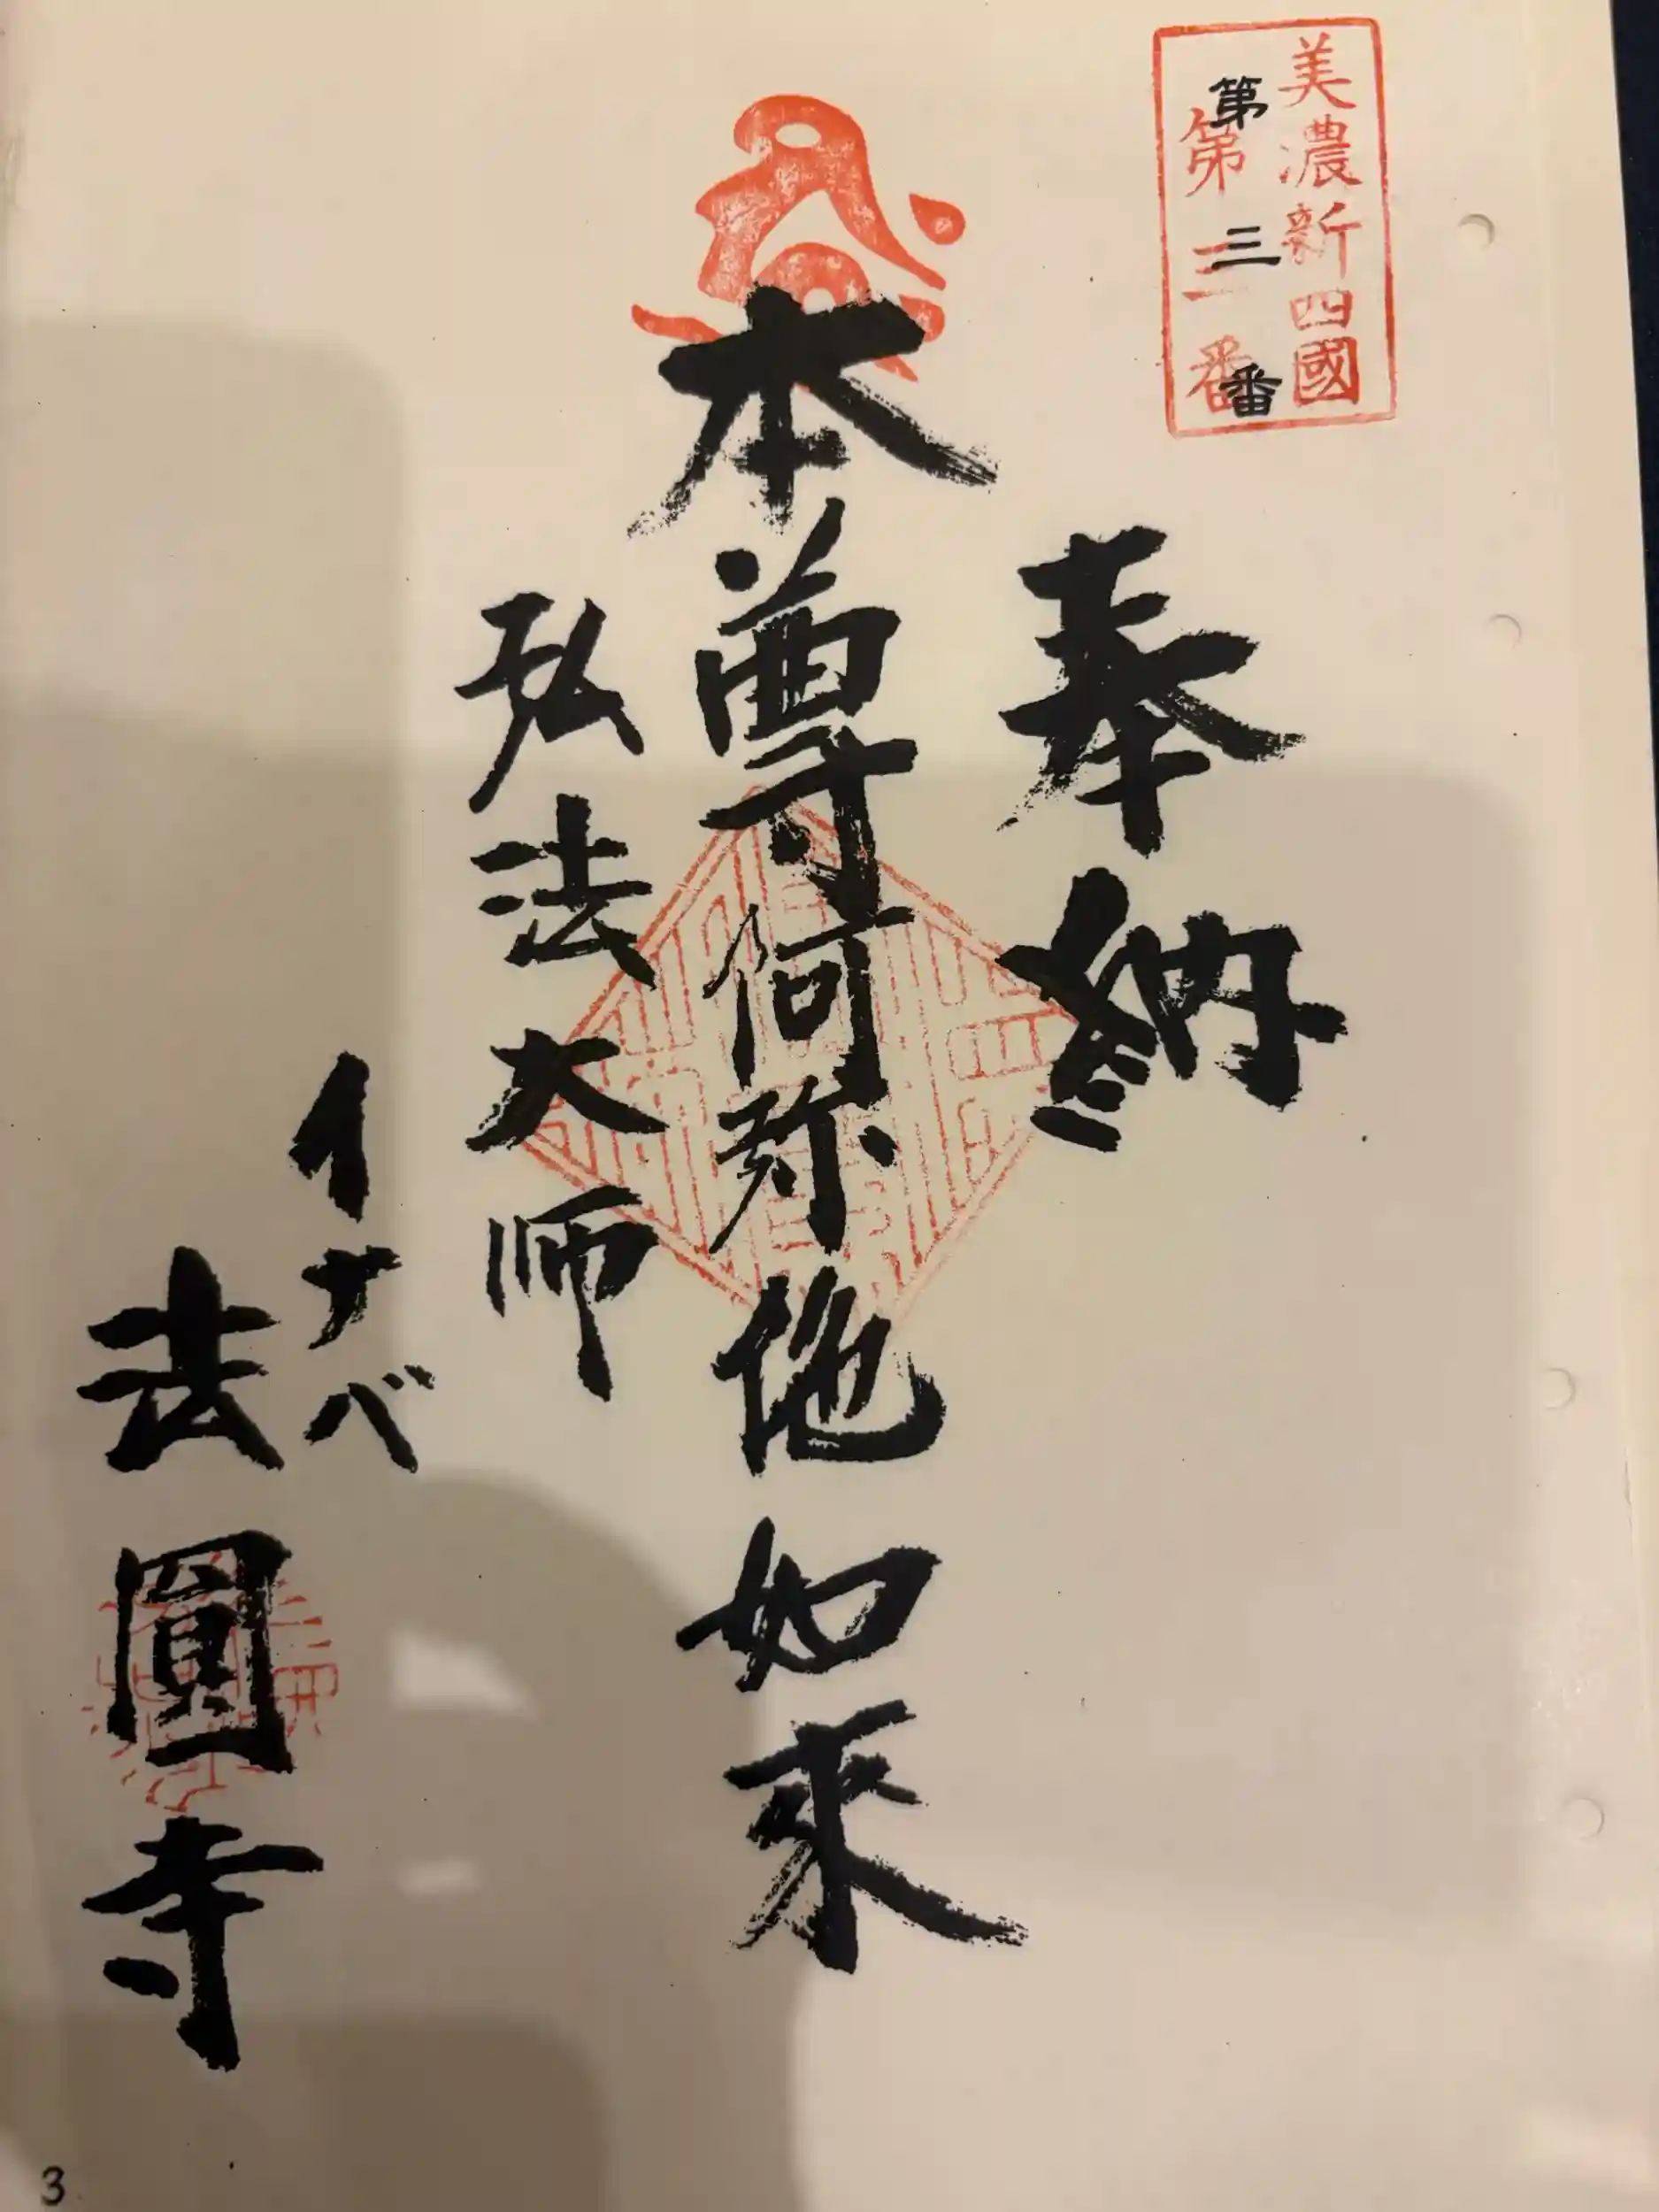 美濃新四國
第三番
第三番
奉納
本尊阿弥他如来
弘法大师
イナバ
法圓寺
3